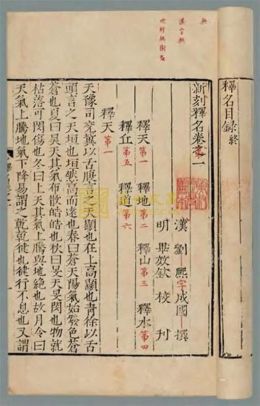 釋名目錄終
新刻釋名卷第一
漢 劉熙字成國 撰
明 畢效欽 校刊
釋天第一 釋地第二 釋山第三 釋水第四
釋丘第五 釋道第六
釋天第一
天豫司兗冀以舌腹言之天顯也在上高顯也青徐以舌
頭言之天垣也垣然高而遠也春曰蒼天陽氣始發色蒼
蒼也夏曰昊天其氣布散皓皓也秋曰旻天旻閔也物就
枯落可閔傷也冬曰上天其氣上騰與地絕也故月令曰
天氣上騰地氣下降易謂之乾乾健也健行不息也又謂